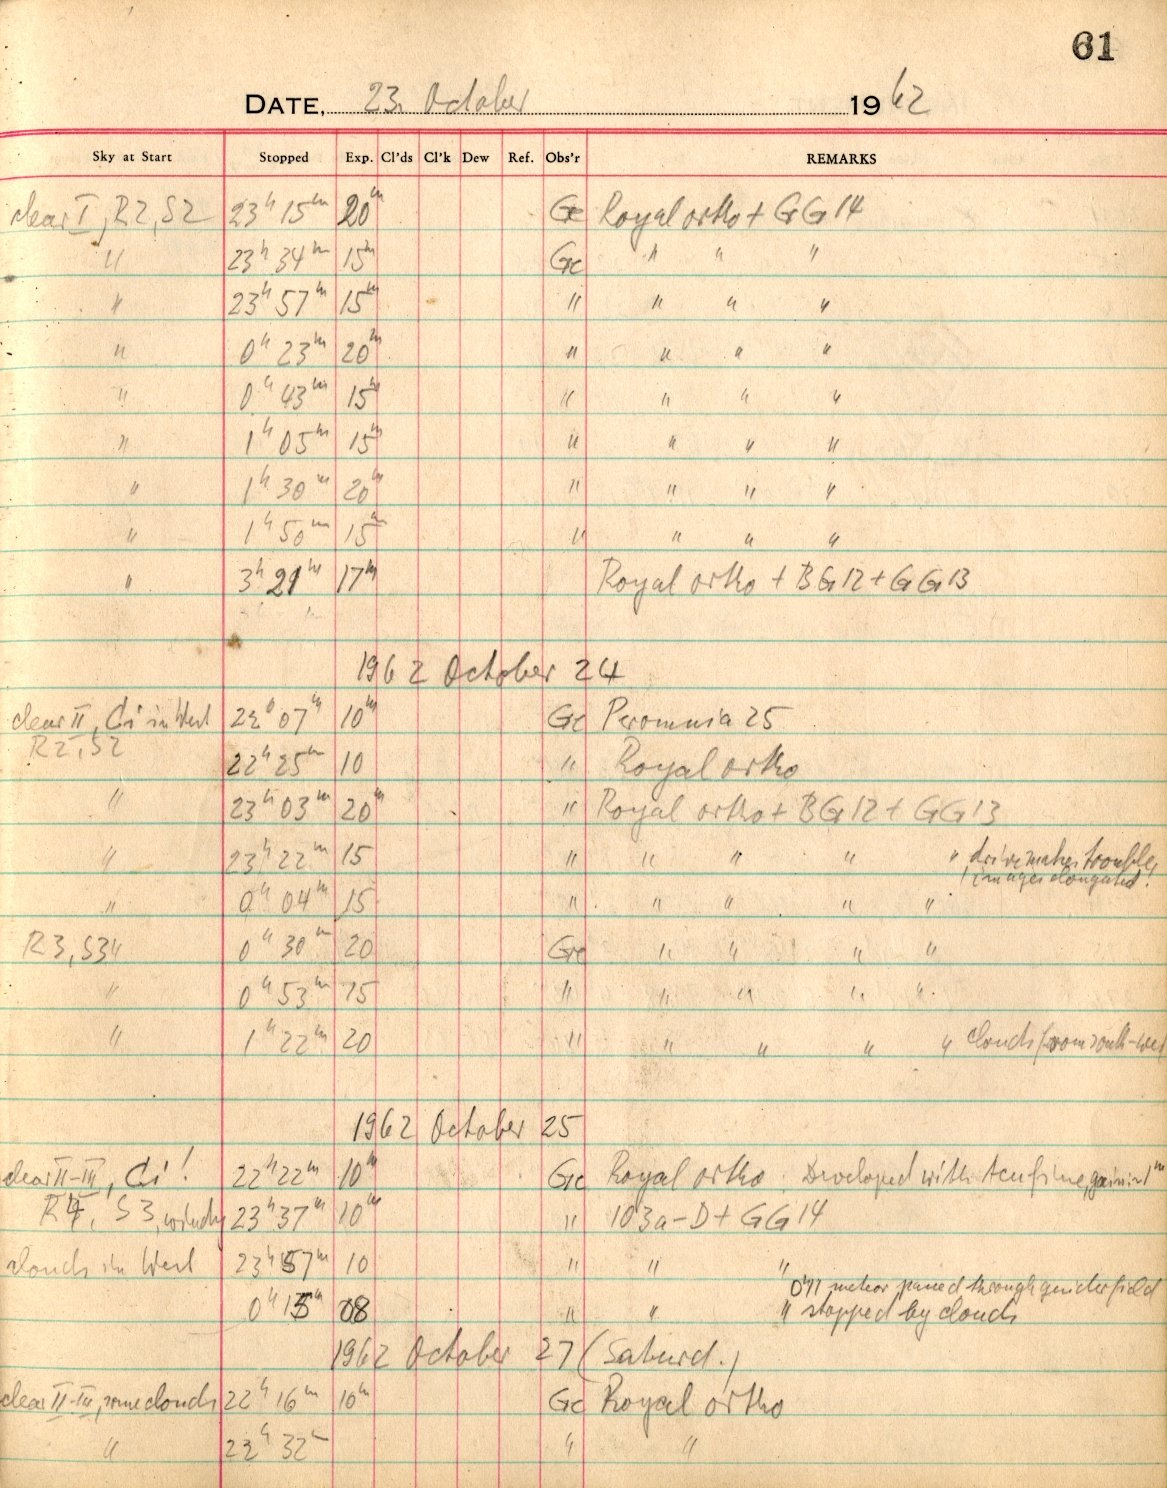 61
DATE, 23. October 1962
Sky at Start Stopped Exp. Cl'ds Cl'k Dew Ref. Obs'r REMARKS
clear I, R2, S2 23h 15m 20m Ge Royal ortho + GG 14
" 23h 34m 15m Ge " " "
" 23h 57m 15m " " " "
" 0h 23m 20m " " " "
" 0h 43m 15m " " " "
" 1h 05m 15m " " " "
" 1h 30m 20m " " " "
" 1h 50m 15m " " " "
" 3h 21m 17m Royal ortho + BG12 + GG13
1962 October 24
clear II, Ci in West 22h 07m 10m Ge 25
R2, S2
22h 25m 10 " Royal ortho
" 23h 03m 20m " Royal ortho + BG12 + GG13
" 23h 22m 15 " " " " " drive makes trouble,
images elongated!
" 0h 04m 15 " " " " "
R3, S34 0h 30m 20 Ge " " " "
" 0h 53m 15 " " " " "
" 1h 22m 20 " " " " " clouds from south-west
1962 October 25
clear II-III, Ci! 22h 22m 10m Ge Royal ortho. Developed with Acufine, gain in 1m
R4, S3, windy 23h 37m 10m " 103a-D + GG14
clouds in West 23h 57m 10 " " "
0h11 meteor passed through guider field
0h 15m 08 " " " stopped by clouds
1962 October 27 (Saturd.)
clear II-III, some clouds 22h 16m 10m Ge Royal ortho
" 22h 32m " "